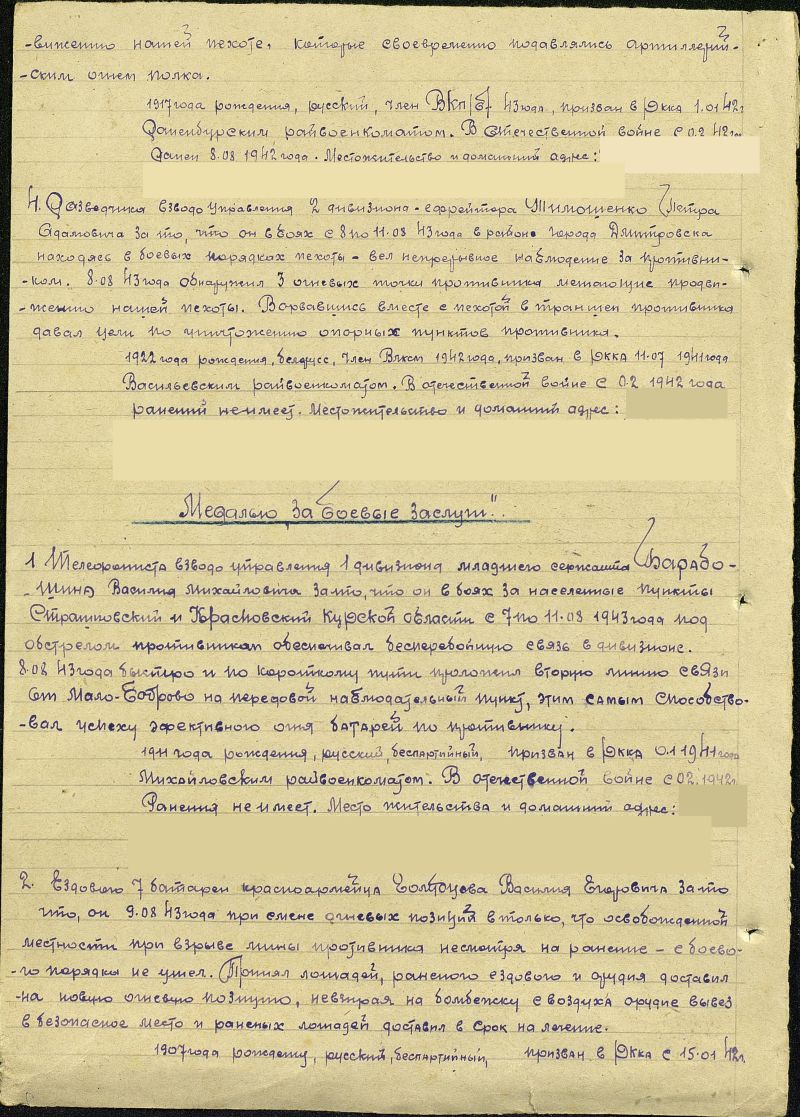 -вижению нашей пехоте, которые своевременно подавлялись артиллерий-
-ским огнем полка.
1917 года рождения, русский, член ВКП/б/ 43 года, призван в РККА 1.01 42 г
райвоенкоматом. В Отечественной войне с 02 42 г
Ранен 8.08 1942 года. Местожительство и домашний адрес:
4. Разведчика взвода управления 2 дивизиона - ефрейтора Тимошенко Петра
Адамовича за то, что он в боях с 8 по 11.08 43 года в районе города Дмитровска
находясь в боевых порядках пехоты - вел непрерывное наблюдение за противни-
ком. 8.08 43 года обнаружил 3 огневых точки противника мешающие продви-
-жению нашей пехоты. Ворвавшись вместе с пехотой в траншеи противника
давал цели по уничтожению опорных пунктов противника.
1922 года рождения, белорусс, член ВЛКСМ 1942 года, призван в РККА 11.07 1941 года
Васильевским райвоенкоматом. В отечественной войне с 02 1942 года
ранений не имеет. Местожительство и домашний адрес:
Медалью за боевые заслуги".
1 Телефониста взвода управления 1 дивизиона младшего сержанта Барабо-
-шина Василия Михайловича за то, что он в боях за населенные пункты
Страшновский и Красновский Курской области с 7 по 11.08 1943 года под
обстрелом противникам обеспечивал бесперебойную связь в дивизионе.
8.08 43 года быстро и по короткому пути проложил вторую линию связи
от Мало-Боброво на передовой наблюдательный пункт, этим самым способство-
-вал успеху эфективного огня батарей по противнику.
1911 года рождения, русский, беспартийный, призван в РККА 01 1941 года
Михайловским райвоенкоматом. В отечественной войне с 02.1942 г
Ранения не имеет. Место жительства и домашний адрес:
2. Ездового 7 батареи красноармейца Василия Егоровича за то
что, он 9.08 43 года при смене огневых позиций в только, что освобожденной
местности при взрыве мины противника несмотря на ранение - с боево-
-го порядка не ушел. Принял лошадей, раненого ездового и орудия доставил
-на новую огневую позицию, невзирая на бомбежку с воздуха орудие вывез
в безопасное место и раненых лошадей доставил в срок на лечение.
1907 года рождению, русский, беспартийный, призван в РККА с 15.01 42 г.